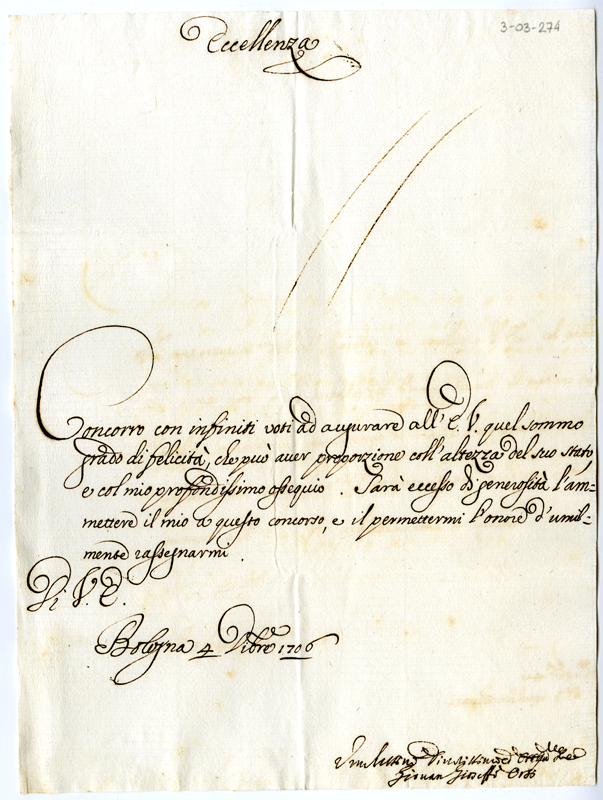 3-03-274
Eccellenza
Concorro con infiniti voti ad augurare all'E. V. quel sommo
grado di felicità, che può auer proporzione coll'altezza del suo stato,
e col mio profondissimo ossequio. Sarà eccesso di generosità l'am-
mettere il mio a questo concorso, e il permettermi l'onore d'umil-
mente rassegnarmi.
Di V. E.
Bologna 4 Xbre 1706
Giovan Gioseffo Orsi